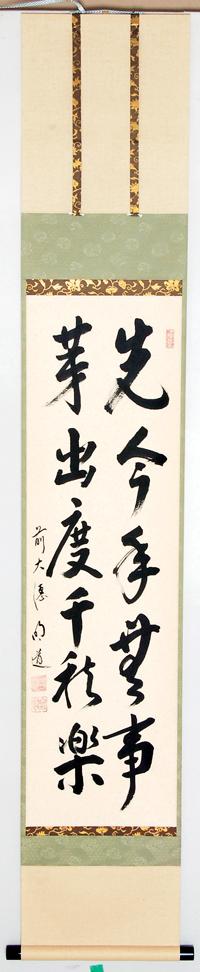 先今年無事
芽出度千秋楽
前大徳明道